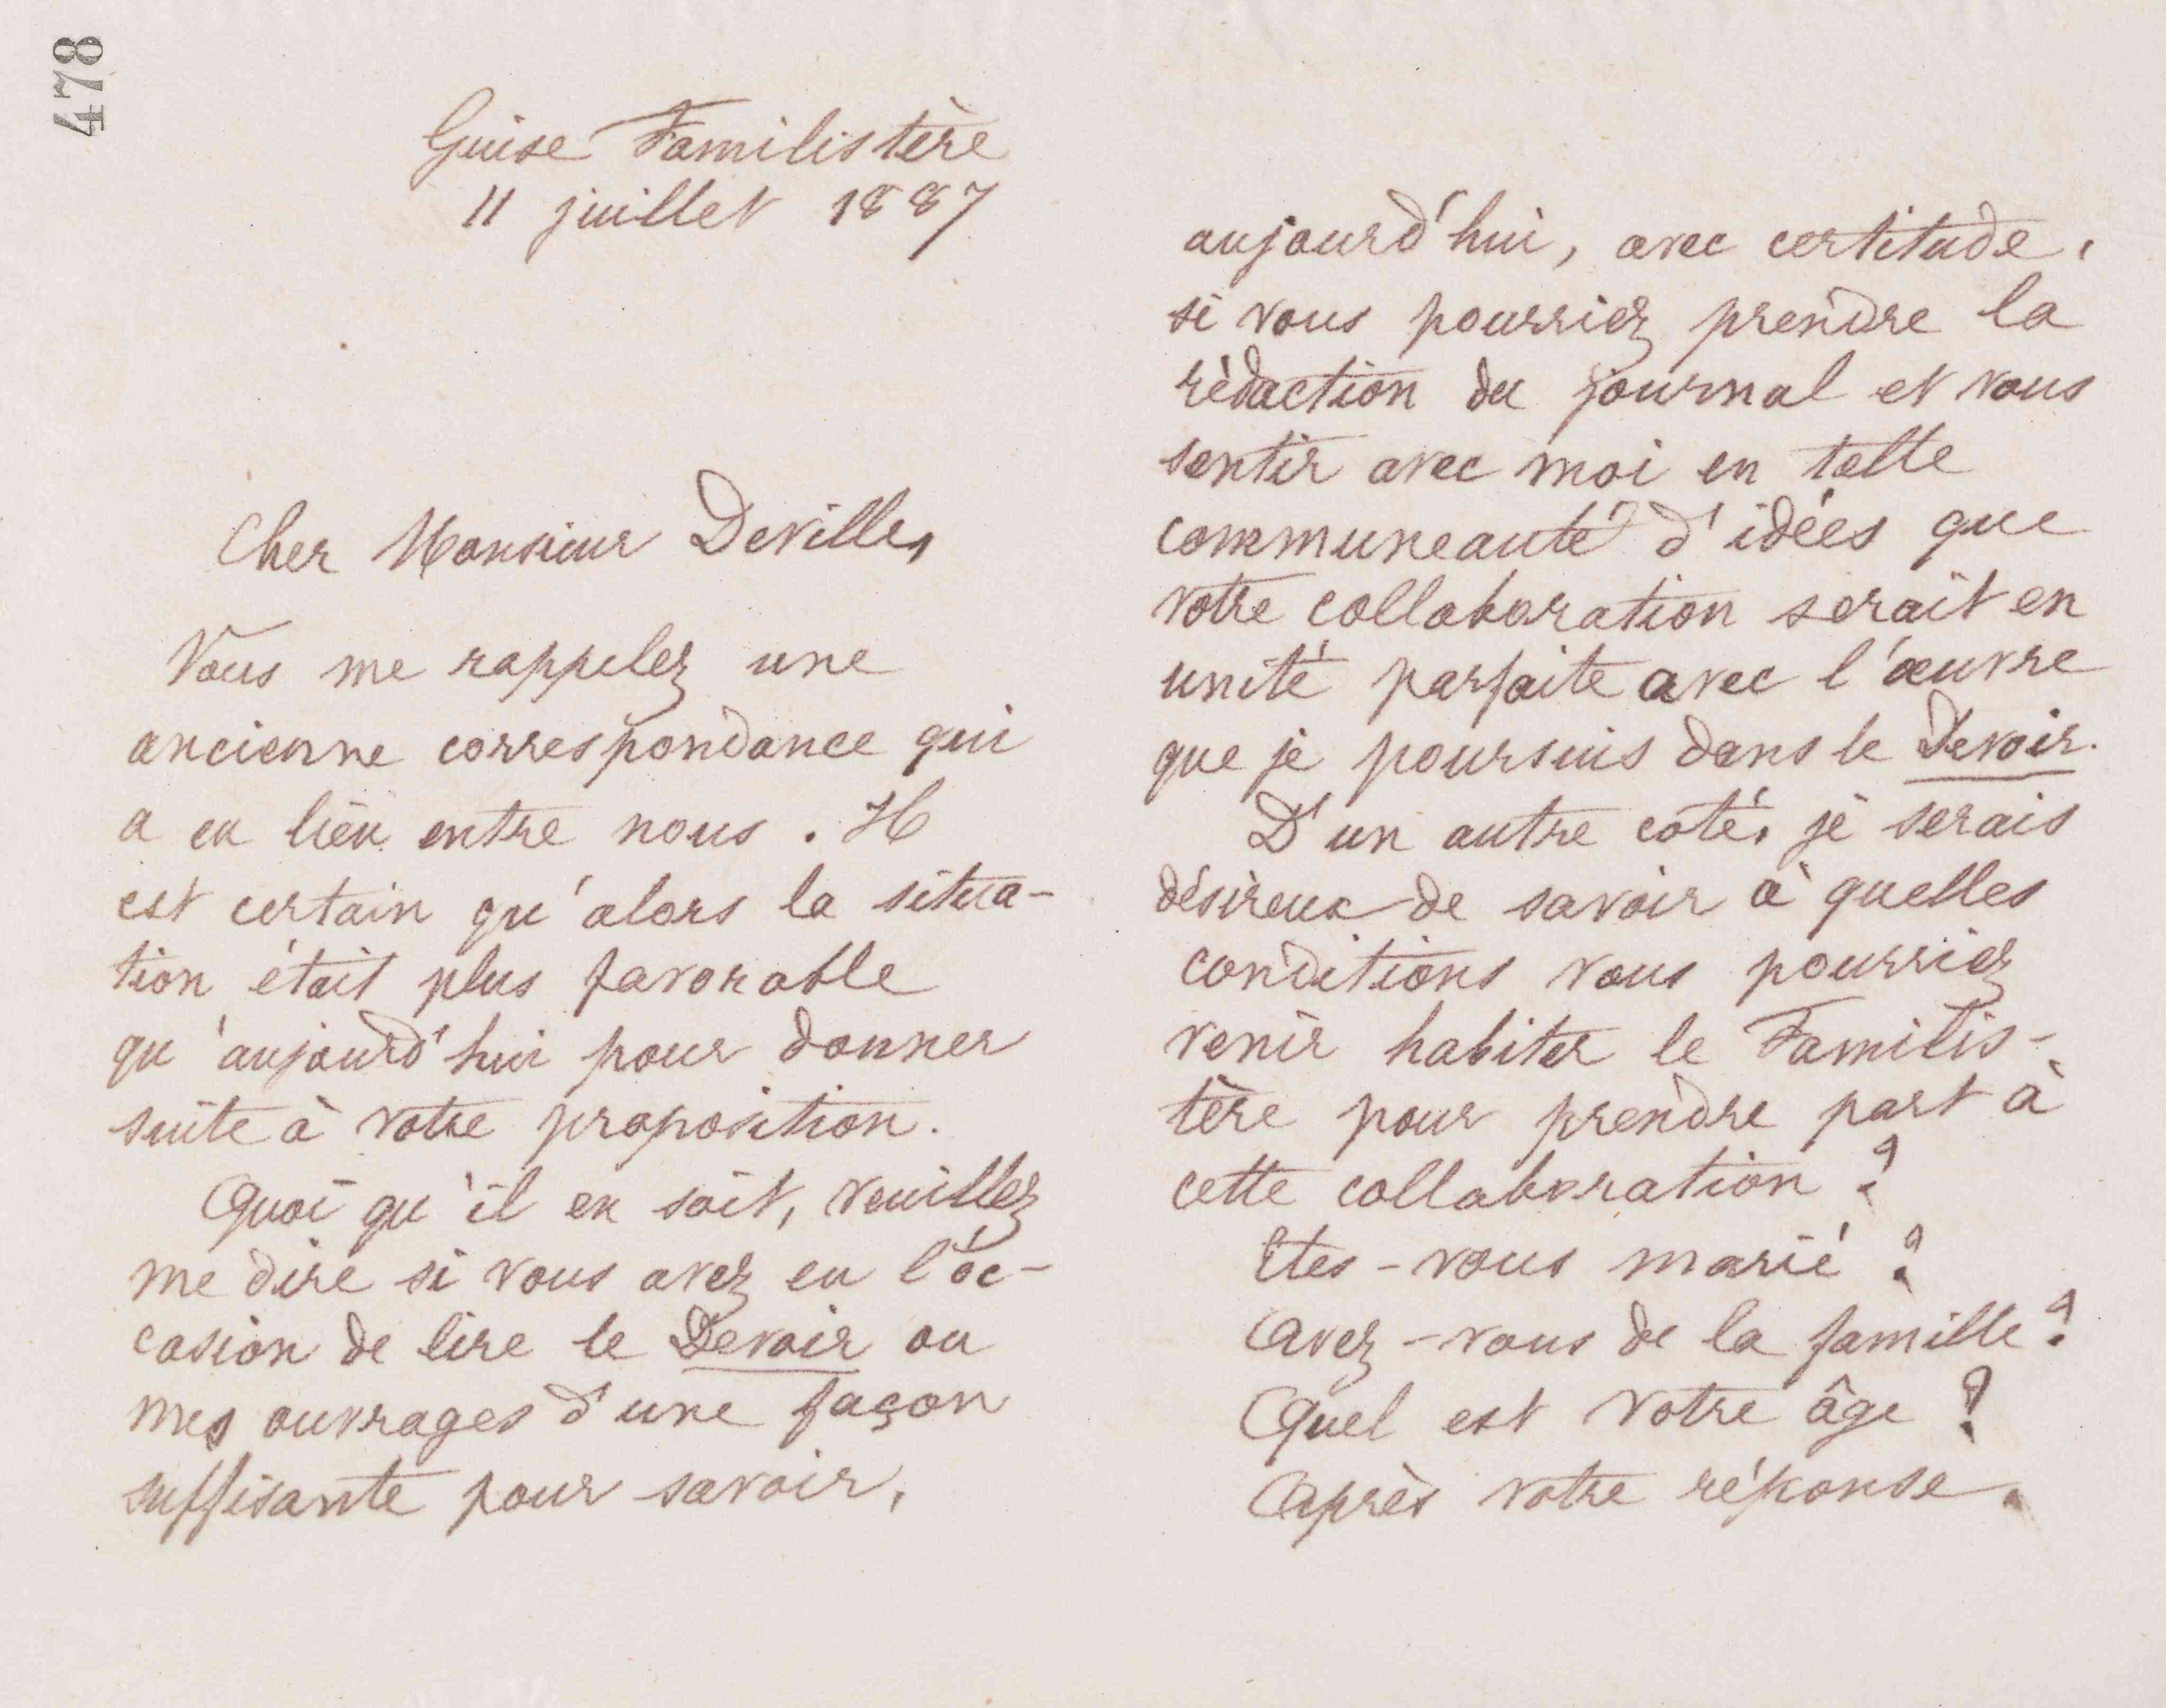 478
Guise Familistère
11 juillet 1887
Cher Monsieur Deville,
Vous me rappelez une
ancienne correspondance qui
a eu lieu entre nous. Il
est certain qu'alors la situa-
tion était plus favorable
qu'aujourd'hui pour donner
suite à votre proposition.
Quoi qu'il en soit, veuillez
me dire si vous avez eu l'oc-
casion de lire le Devoir ou
mes ouvrages d'une façon
suffisante pour savoir,
aujourd'hui, avec certitude,
si vous pourriez prendre la
rédaction du journal et vous
sentir avec moi en telle
communeauté d'idées que
votre collaboration serait en
unité parfaite avec l'œuvre
que je poursuis dans le Devoir.
D'un autre coté, je serais
désireux de savoir à quelles
conditions vous pourriez
venir habiter le Familis-
tère pour prendre part à
cette collaboration ?
Etes-vous marié ?
Avez-vous de la famille ?
Quel est votre âge ?
Après votre réponse,